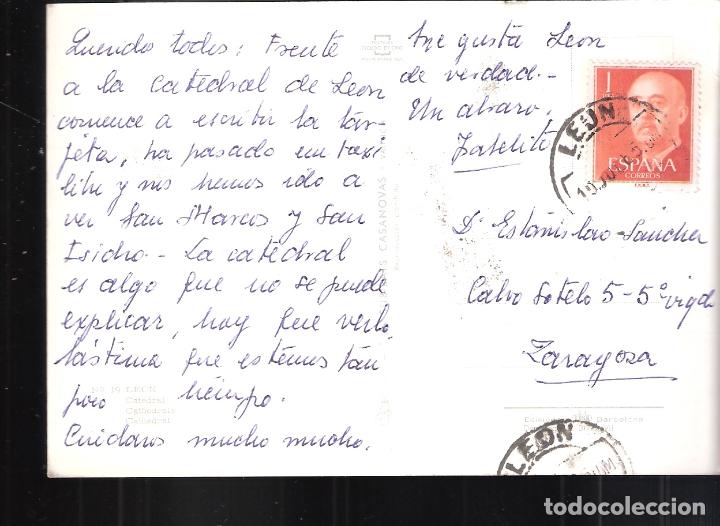 Querido todos: Frente
a la catedral de Leon
comence a escribir la tar-
jeta, ha pasado un taxi
libre y nos hemos ido a
ver San Marcos y San
Isidro.- La catedral
es algo que no se puede
explicar, hay que verlo,
lástima que estemos tan
poco tiempo.
Cuidaros mucho mucho.
gusta Leon
de verdad.-
Un abrazo.
D. Estanislao Sánchez
Calvo Sotelo 5-5º izqda
Zaragoza
1
ESPAÑA
CORREOS
LEON
LEON
CASANOVAS
Nº 19 LEON
Catedral
Cathédrale
Cathedral
Barcelona
todocoleccion
todocoleccion.net